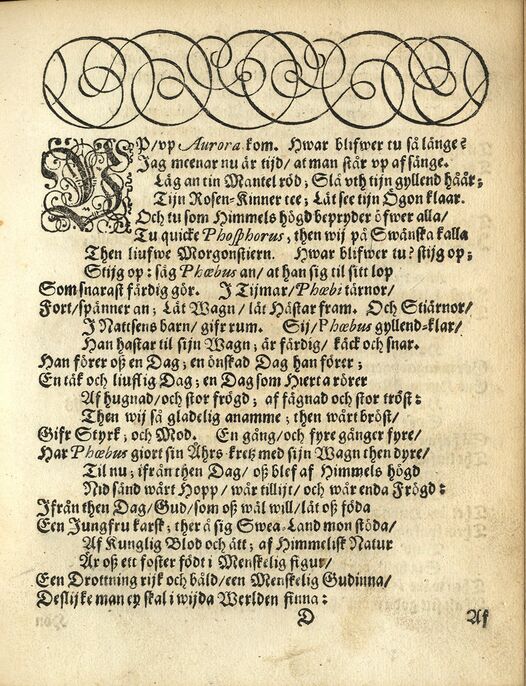 VP/vp Aurora kom. Hwar blifwer tu så länge?
Jag meenar nu är tijd/ at man står vp af sänge.
Läg an tin Mantel röd; Slå vth tijn gyllend håår;
Tijn Rosen-Kinner tee; Låt see tijn Ögon klaar.
Och tu som Himmels högd bepryder öfwer alla/
Tu quicke Phosphorus, then wij på Swänska kalla
Then liufwe Morgonstiern. Hwar blifwer tu? stijg op;
Stijg op: säg Phœbus an/ at han sig til sitt lop
Som snarast färdig gör. J Tijmar/ Phœbi tärnor/
Fort/ spänner an; Låt Wagn/ låt Hästar fram. Och Stiärnor/
J Nattsens barn/ gifr rum. Sij/ Phœbus gyllend-klar/
Han hastar til sijn Wagn; är färdig/ käck och snar.
Han förer oß en Dag; en önskad Dag han förer;
En täk och liuflig Dag; en Dag som Hierta rörer
Af hugnad/ och stor frögd; af fägnad och stor tröst:
Then wij så gladelig anamme; then wårt bröst/
Gifr Styrk; och Mod. En gång/ och fyre gånger fyre/
Har Phœbus giort sin Åhrs kretz med sijn Wagn then dyre/
Til nu; ifrån then Dag/ oß blef af Himmels högd
Nid sänd wårt Hopp/ wår tillijt/ och wår enda Frögd:
Jfrån then Dag/ Gud/ som oß wäl will/ lät oß föda
Een Jungfru karsk; ther å sig Swea-Land mon stöda/
Af Kunglig Blod och ätt; af Himmelisk Natur
Är oß ett foster födt i Menskelig figur/
Een Drottning rijk och båld/ een Menskelig Gudinna/
Deslijke man ey skal i wijda Werlden finna:
D Af